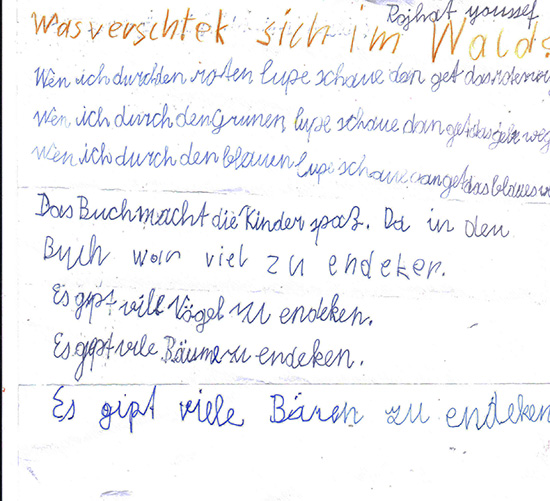 Rojhat youssef
Was verschtek sich im Walds
Wen ich durch den roten lupe schaue dan get das rote weg
Wen ich durch den Grunen lupe schaue dan get das geln weg
Wen ich durch den blauen lupe schaue dan get das blaues w
Das Buch macht die Kinder spaß. Da in den
Buch war viel zu endeken.
Es gipt ville Vögel zu endeken.
Es gipt viele Bäume zu endeken.
Es gipt viele Bären zu endeken